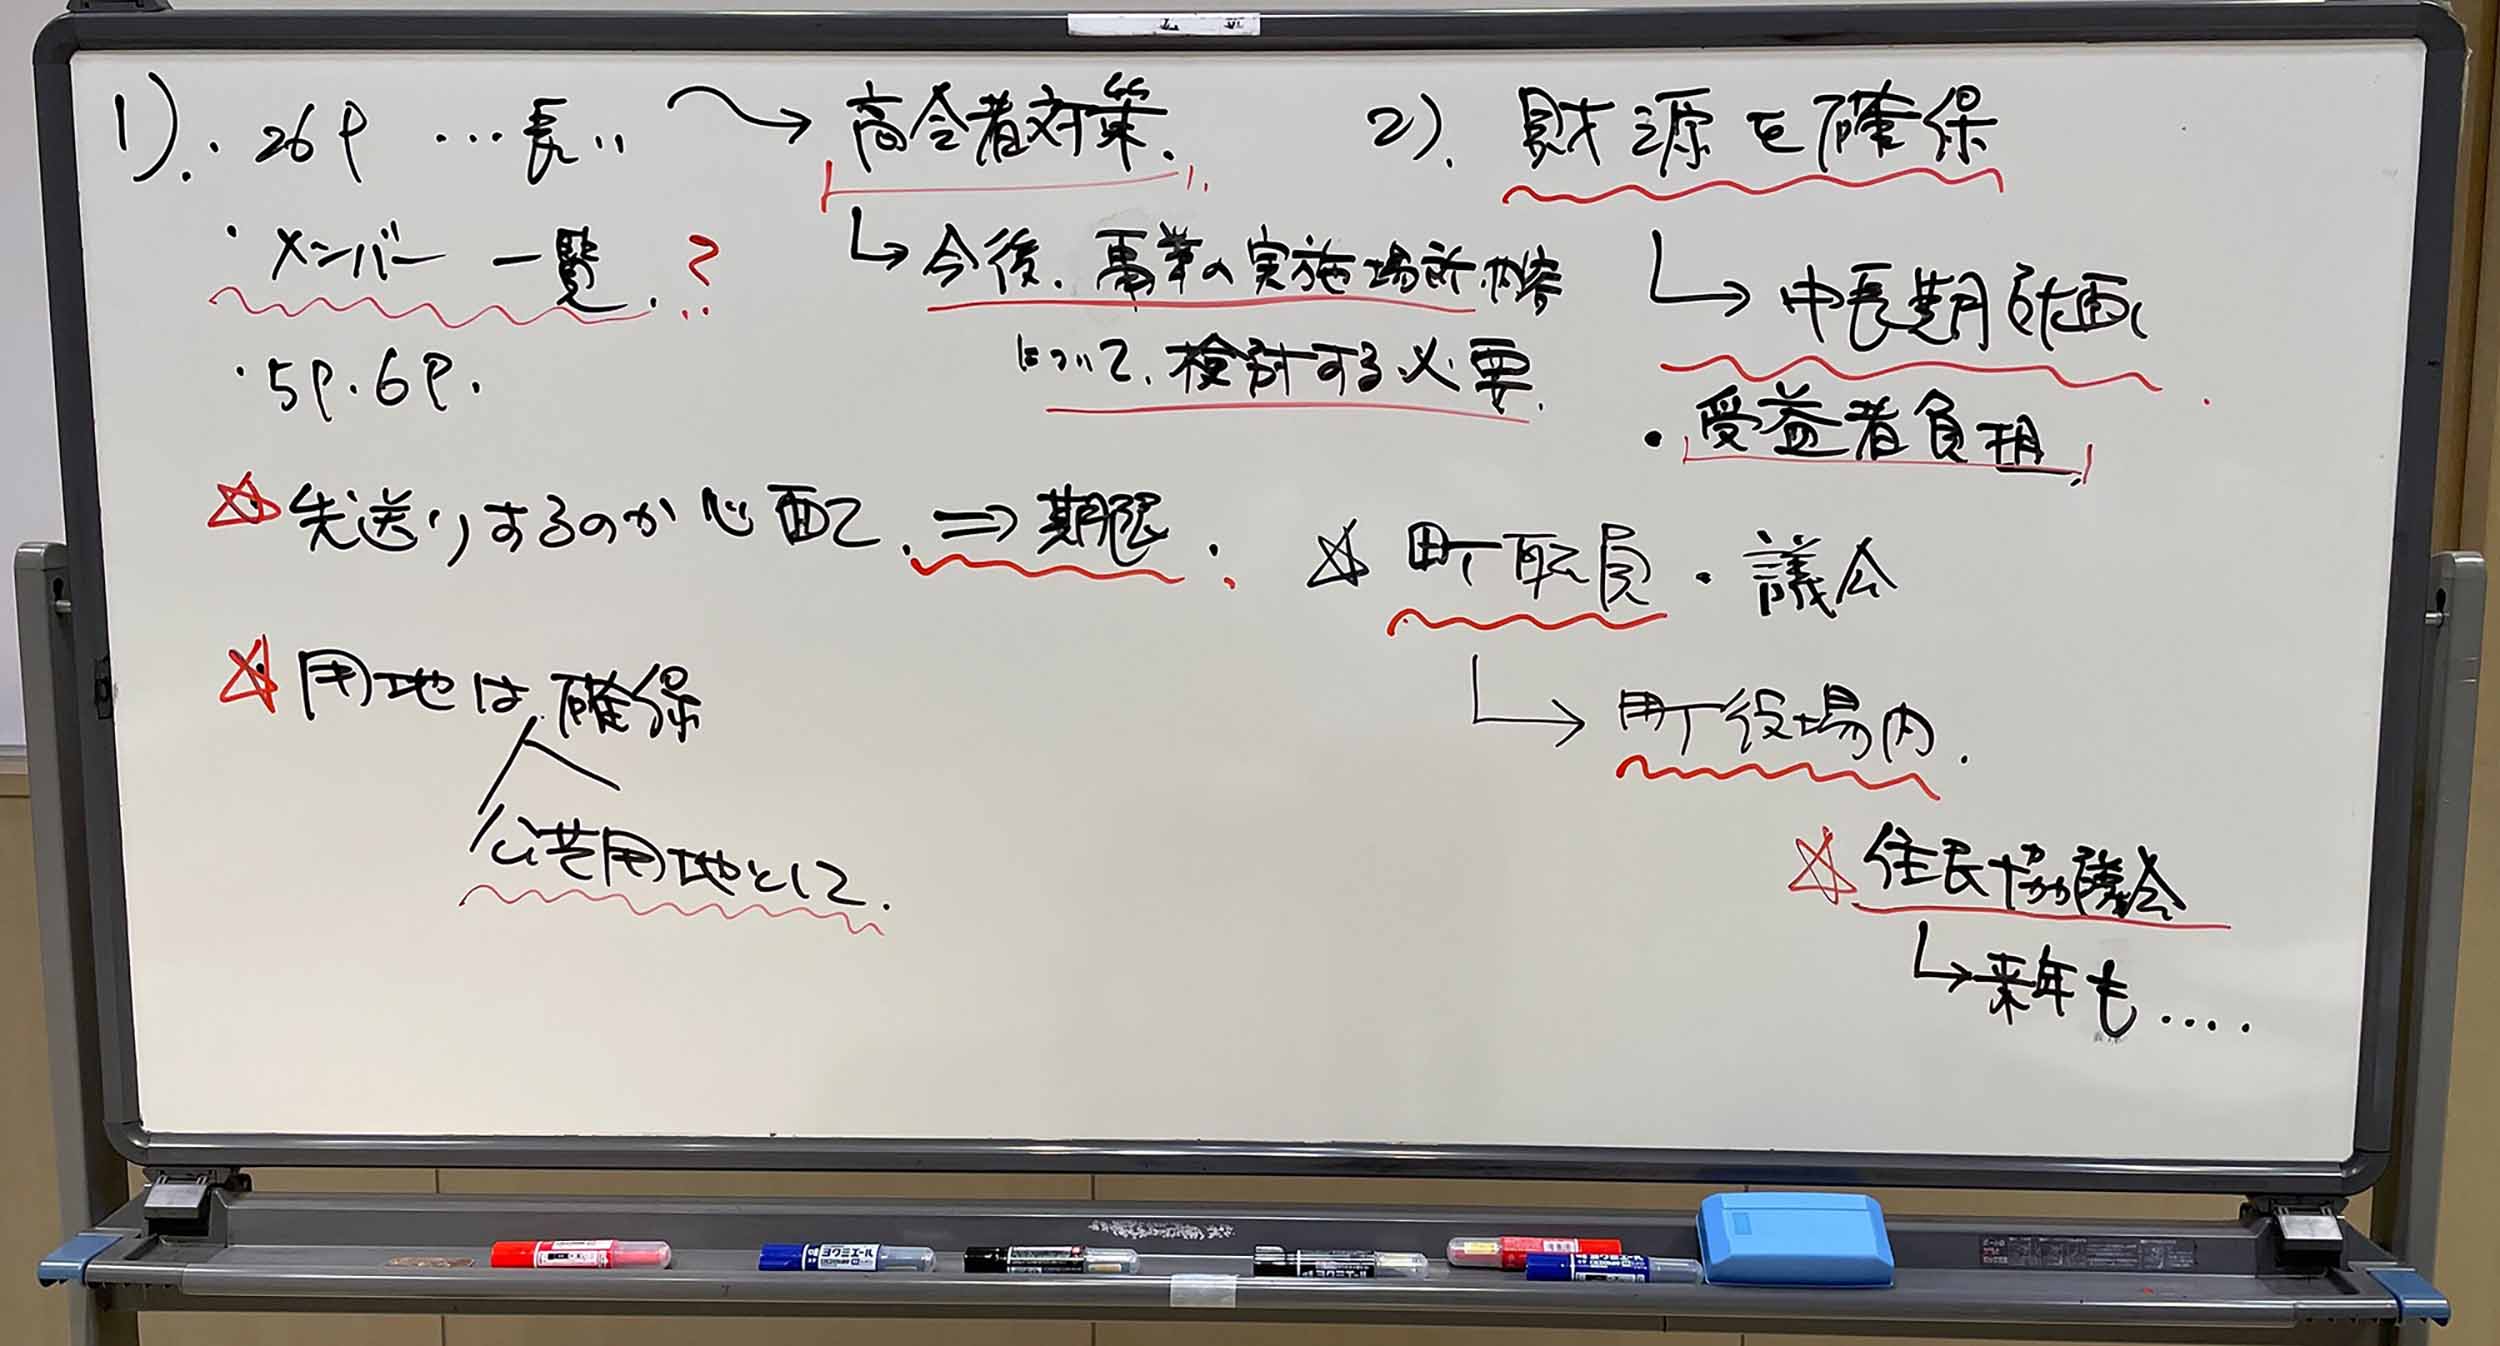 1).・26P …長い
・メンバー一覧.?
・5P.6P.
☆先送りするのが心配で.⇒期限.
☆用地は確保
公共用地として.
→高令者対策.
↳今後.事業の実施場所
について.検討する必要.
2).財源を確保
↳中長期計画
・受益者負担
☆町職員・議会
↳町役場内.
☆住民協議会
↳来年も....
ヨクミエール
ヨクミエール